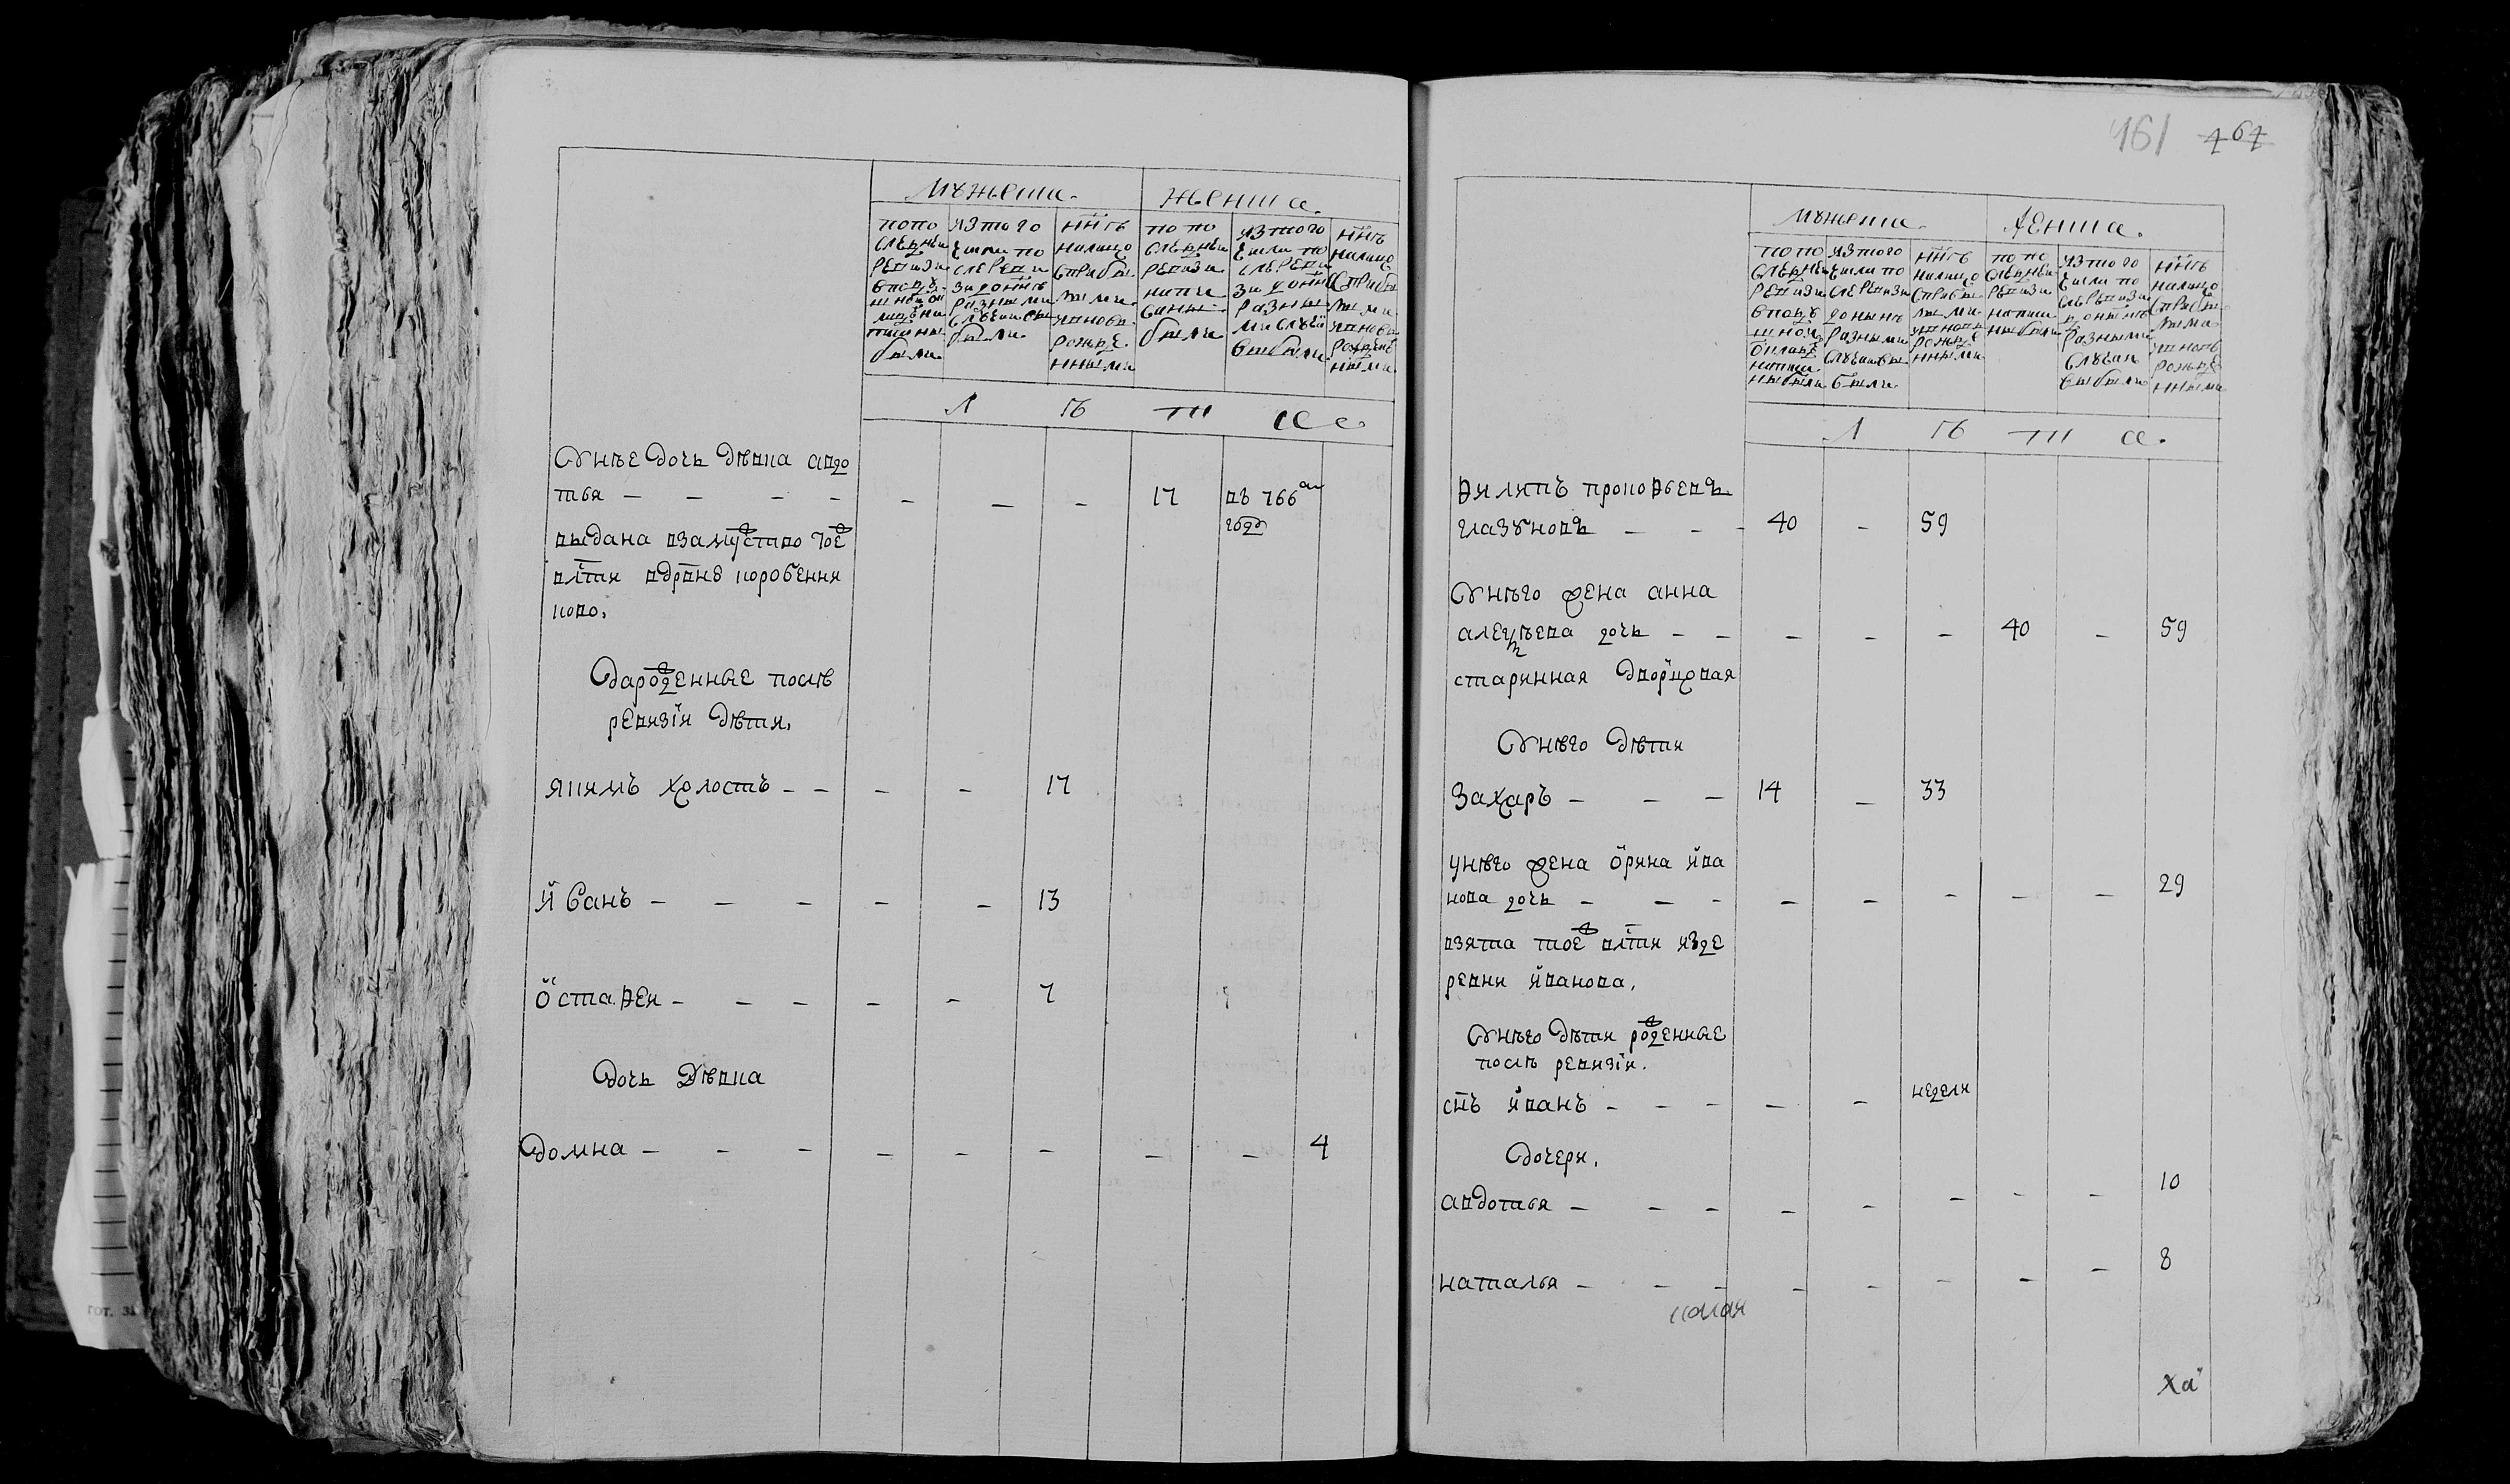 мужеска.
женска.
попо
следней
ревизи
вподу
шной ок
ладъ на
писаны
были
изтого
числа по
следеви
зи доннѣ
разными
случаи вы
были.
ннѣ
налицо
сприбы
лыми
ивновь
рожде
нными
по по
следней
ревизи
напи
саны
были
изтого
числа по
следеви
зи донн
разны
ми случаи
выбыли
ннѣ
налицо
сприбы
лыми
ивновь
рожден
ными
л ѣ т а
Унѣе дочь дѣвка авдо
тья — — — — — — — 17 въ 766м
году
выдана взамуство тоеж
влсти вдрвне коробейни
ково,
Дароженные послѣ
ревизiи дѣти,
якимъ холостъ — — — — 17
йванъ — — — — — 13
ѻстафеи — — — — — 7
Дочь Дѣвка
домна — — — — — — — — 4
161 467
мужеска.
женска.
попо
следней
ревизи
вподу
шной
окладъ
написа
ны были
изтого
числа по
следевизи
донынѣ
разными
случаи вы
были.
ннѣ
налицо
сприбы
лыми
ивновь
рожде
нными
по по
следней
ревизи
написа
ны были
изтого
числа по
следевизи
донынѣ
разными
случаи
выбыли
ннѣ
налицо
сприбы
лыми
ивновь
рожде
нными
л ѣ т а.
филипъ прокофьевъ
глазуновъ — — — 40 — 59
Унѣго жена анна
алеѯѣева дочь — — — — — 40 — 59
старинная дворцовая
Унѣго дѣти
Захаръ — — — 14 — 33
унѣго жена ѻрина йва
нова дочь — — — — — — — — 29
взята тоеж влсти изде
ревни йванова,
Унѣго дѣти роженные
послѣ ревизiи.
снъ йванъ — — — — — недели
Дочери,
авдотья — — — — — — — — 10
наталья — — — — — — — — 8
ха